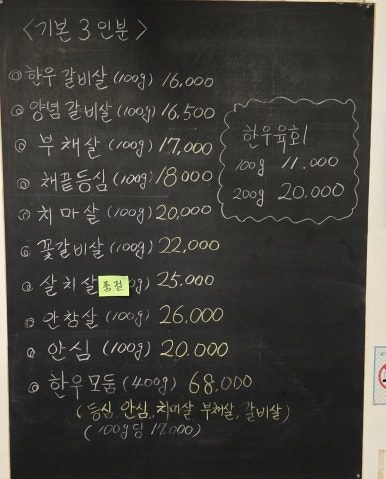 <기본 3인분>
한우 갈비살 (100g) 16,000
양념 갈비살 (100g) 16,500
부채살 (100g) 17,000
채끝등심 (100g) 18000
치마살 (100g) 20,000
꽃갈비살 (100g) 22,000
살치살 품절 0g) 25,000
안창살 (100g) 26,000
안심 (100g) 20.000
한우모둠 (400g) 68,000
(등심, 안심, 치마살 부채살, 갈비살)
(100g당 17.000)
한우육회
100g 11.000
200g 20.000